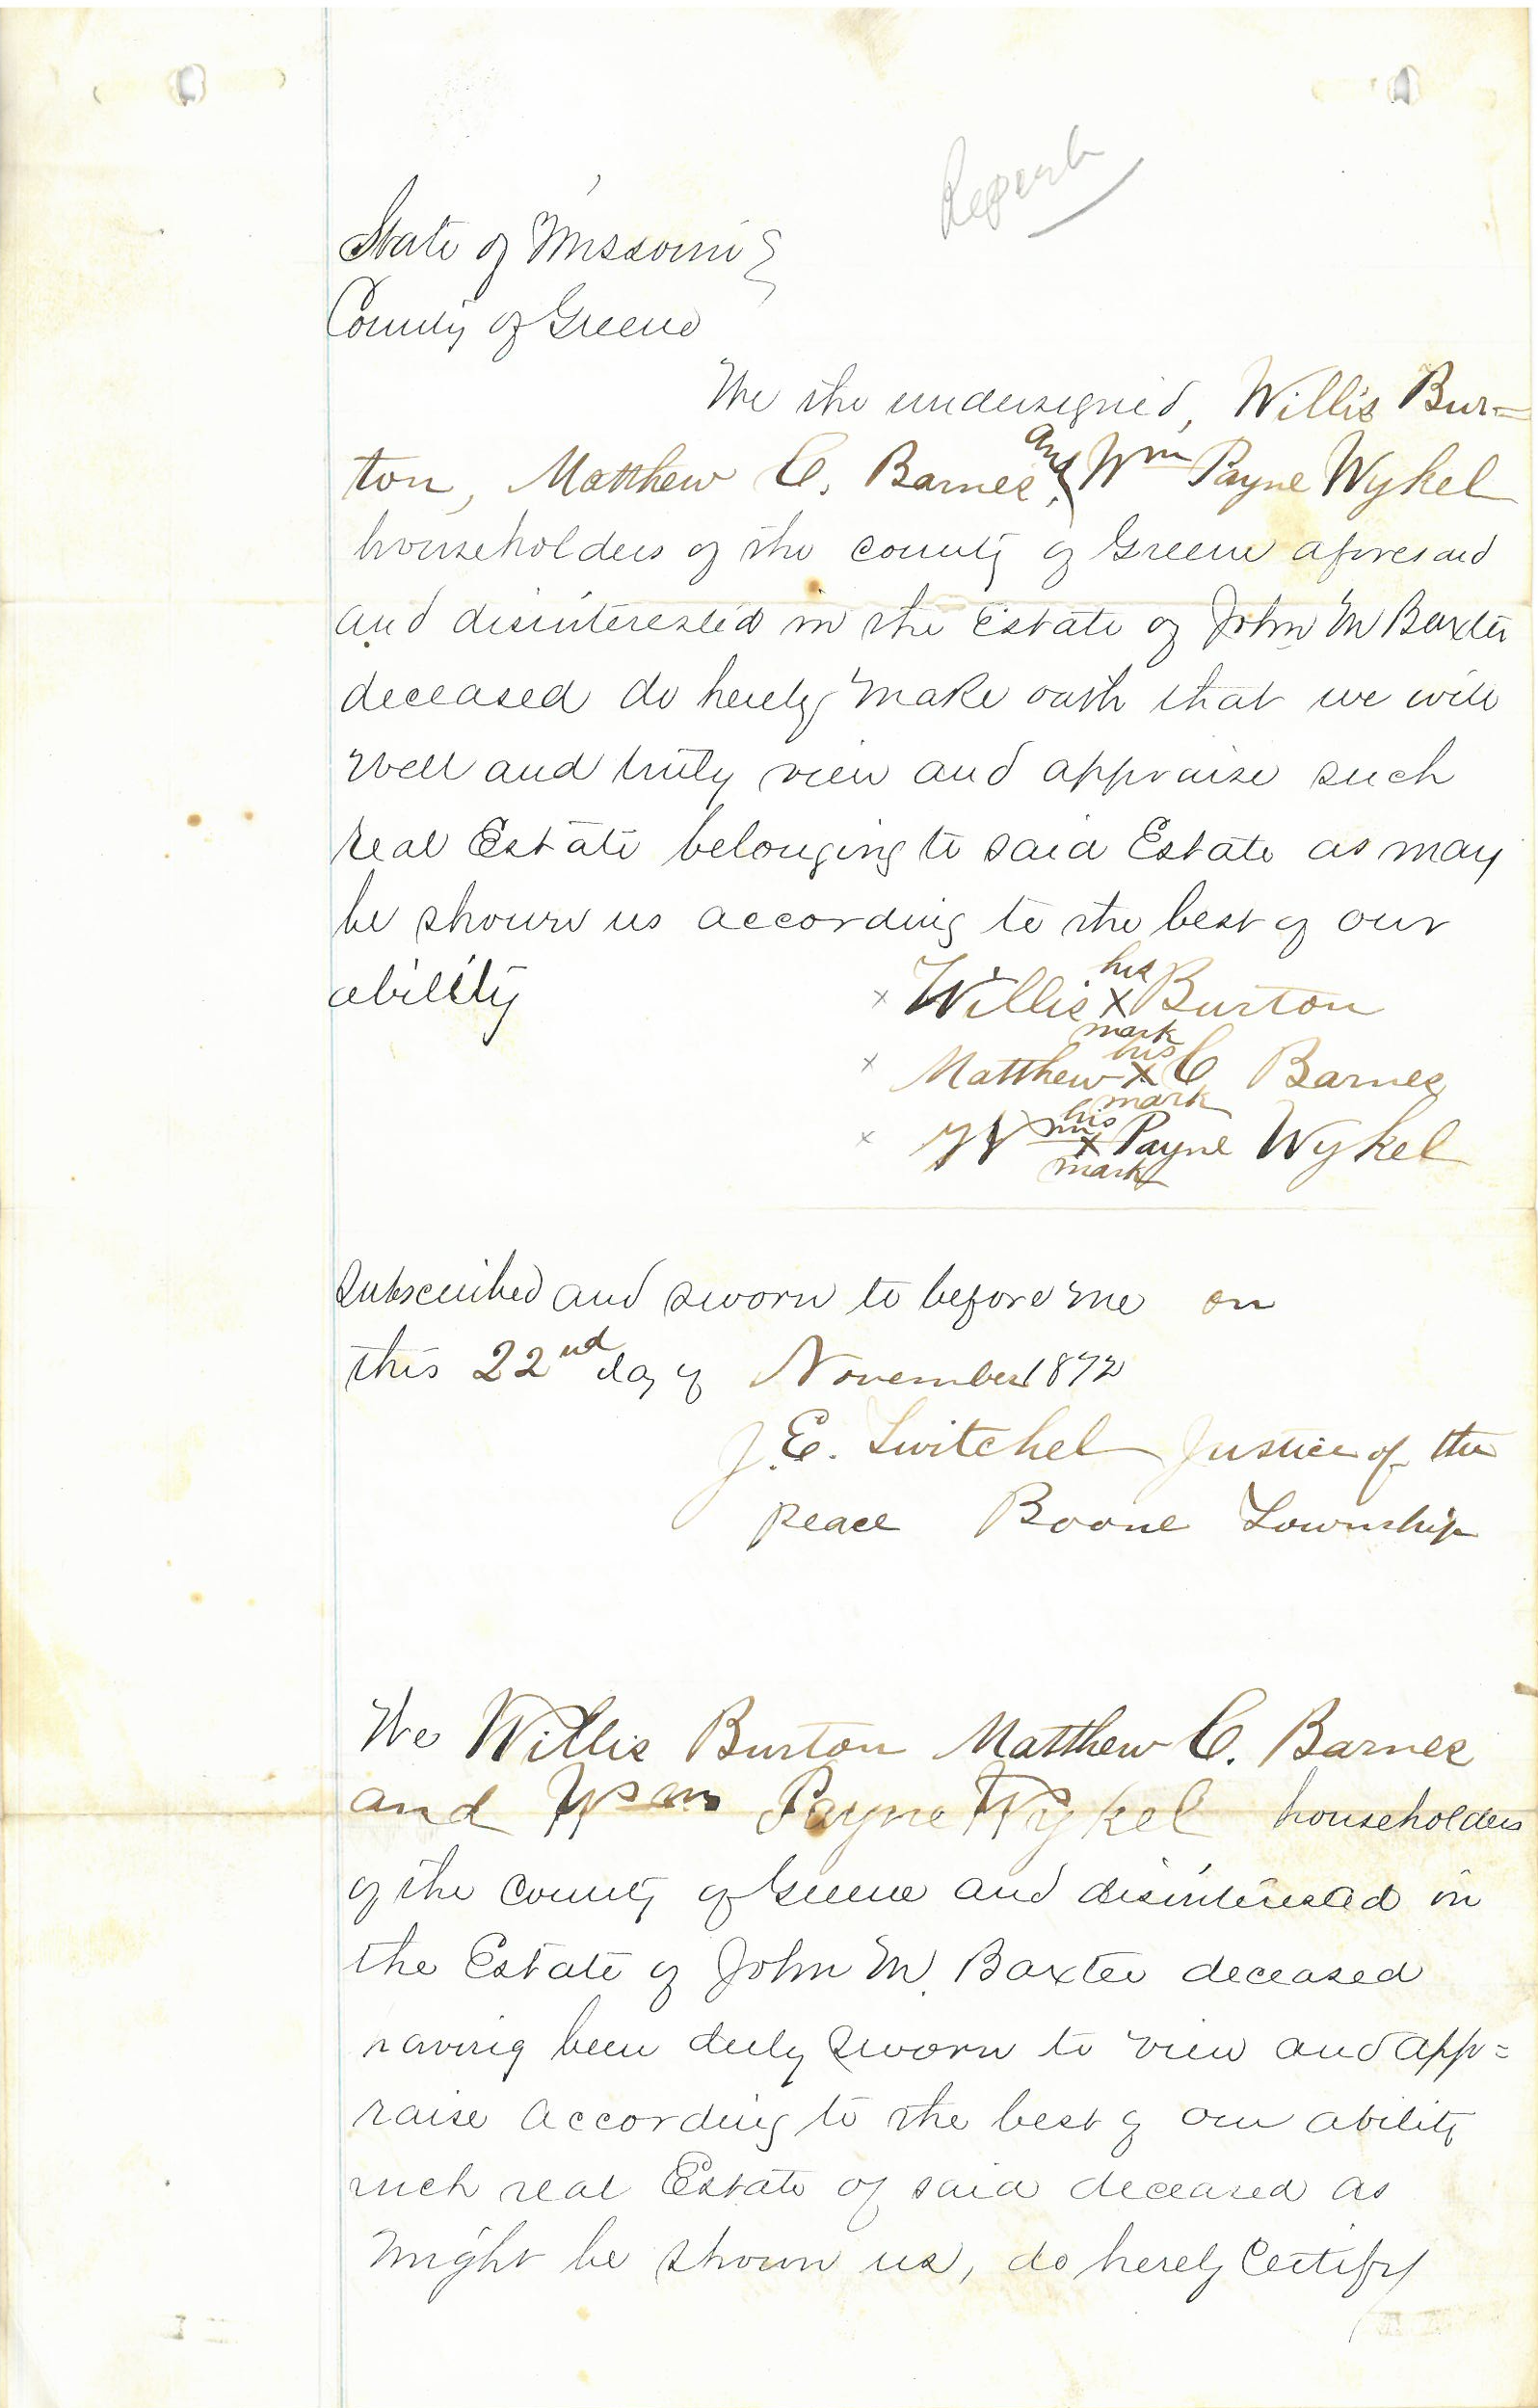 Report
State of Missouri
County of Greene
We the undersigned, Willis Bur=
ton, Matthew C. Barnes, and Wm Payne Wykel
householders of the county of Greene aforesaid
and disinterested in the Estate of John M Baxter
deceased do hereby make oath that we will
well and truly view and appraise such
real Estate belonging to said Estate as may
be shown us according to the best of our
ability
x Willis his x mark Burton
x Matthew his x mark C Barnes
x Wm his x mark Payne Wykel
Subscribed and sworn to before me on
this 22nd day of November 1872
J. E. Twitchel Justice of the
peace Boone Township
We Willis Burton Matthew C. Barnes
and Wm Payne Wykel householders
of the county of Greene and disinterested in
the Estate of John M. Baxter deceased
having been duly sworn to view and app=
raise according to the best of our ability
such real Estate of said deceased as
might be shown us, do hereby Certify